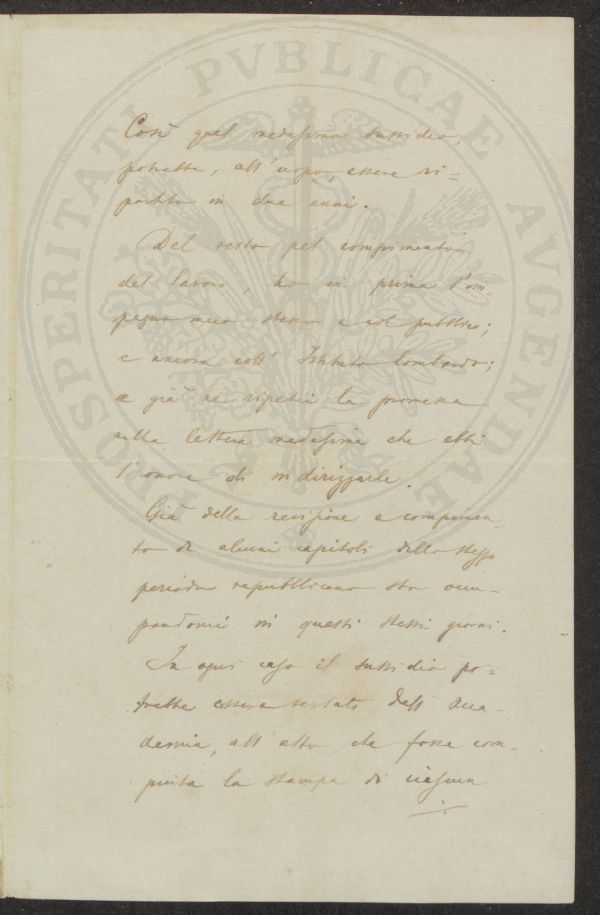 Così quel medesimo sussidio,
potrebbe, all'uopo, essere ri=
partito in due anni.
Del resto pel compimento
del lavoro, ho in prima l'im-
pegno meco stesso e col pubblico;
e ancora coll' Istituto lombardo;
e già ne ripetei la promessa
nella lettera medesima che ebbi
l'onore di indirizzarle.
Già della revisione e compimen-
to di alcuni capitoli dello stesso
periodo repubblicano sto occu-
pandomi in questi stessi giorni.
In ogni caso il sussidio po=
trebbe essere versato dall' Acca-
demia, all' atto che fosse com-
piuta la stampa di ciascun
PROSPERITATI PVBLICAE AVGENDAE